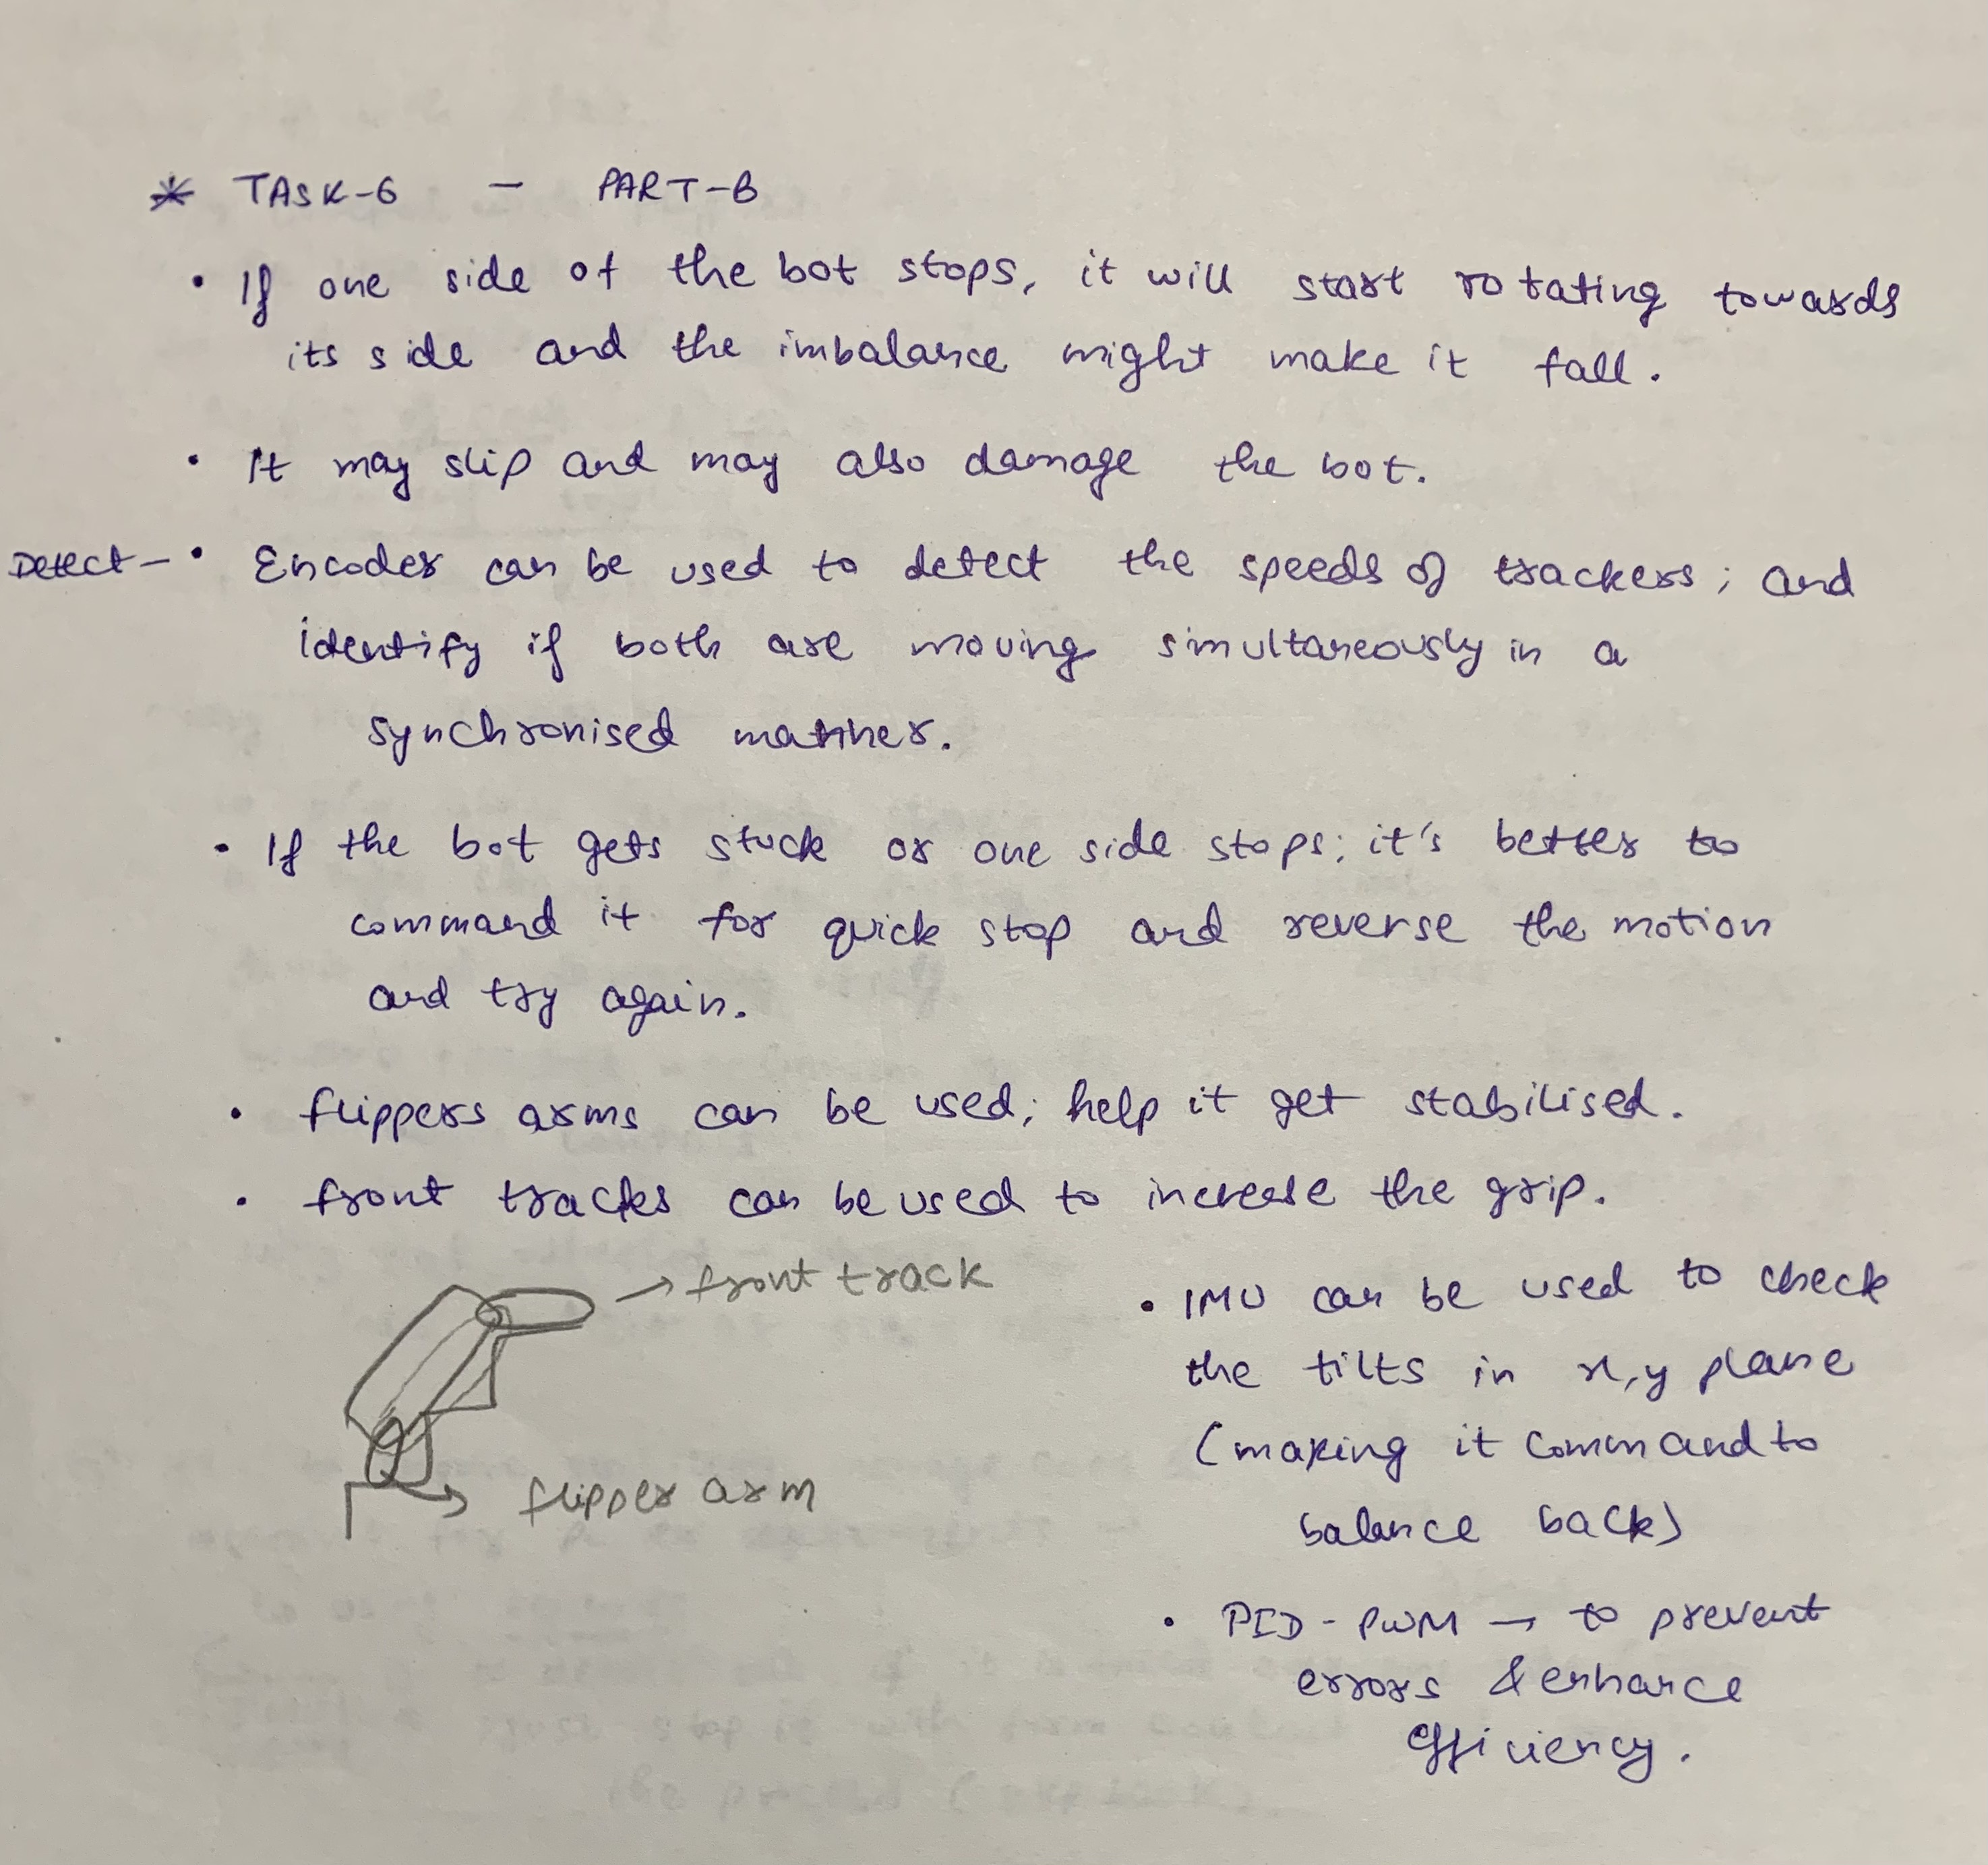 * TASK-6 - PART-B
• If one side of the bot stops, it will start rotating towards
its side and the imbalance might make it fall.
• It may slip and may also damage the bot.
Detect - • Encoder can be used to detect the speeds of trackers; and
identify if both are moving simultaneously in a
synchronised manner.
• If the bot gets stuck or one side stops; it's better to
command it for quick stop and reverse the motion
and try again.
• flippers arms can be used; help it get stabilised.
• front tracks can be used to increase the grip.
→ front track
→ flipper arm
• IMU can be used to check
the tilts in x,y plane
(making it command to
balance back)
• PID - PWM → to prevent
errors & enhance
efficiency.